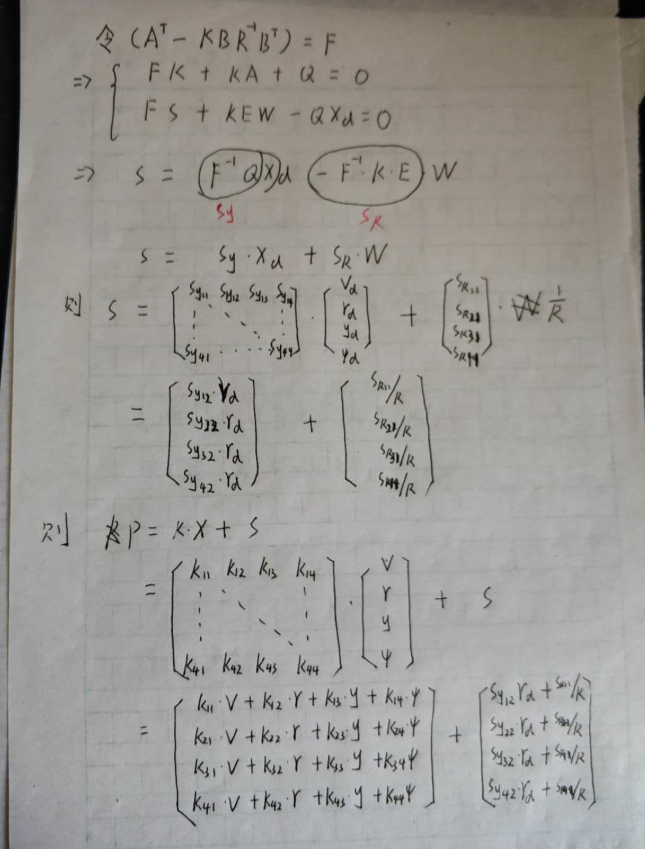 令 (Aᵀ - KBR⁻¹Bᵀ) = F
⇒ { FK + KA + Q = 0
FS + KEW - QXd = 0
⇒ S = (F⁻¹Q)Xd (- F⁻¹·K·E) W
Sy SR
S = Sy·Xd + SR·W
则 S = [Sy11 Sy12 Sy13 Sy14 ⋮ ⋱ ⋮ Sy41 ····· Sy44] · [Vd rd yd ψd] + [SR11 SR22 SR33 SR44] · 1/R
= [Sy12·Vd Sy22·rd Sy32·rd Sy42·rd] + [SR11/R SR22/R SR33/R SR44/R]
则 P = K·X + S
= [K11 K12 K13 K14 ⋮ ⋱ ⋮ K41 K42 K43 K44] · [V r y ψ] + S
= [K11·V + K12·r + K13·y + K14·ψ] + [Sy12 rd + /R]
[K21·V + K22·r + K23·y + K24ψ] [Sy22 rd + /R]
[K31·V + K32·r + K33·y + K34ψ] [Sy32·rd + /R]
[K41·V + K42·r + K43·y + K44ψ] [Sy42·rd + /R]